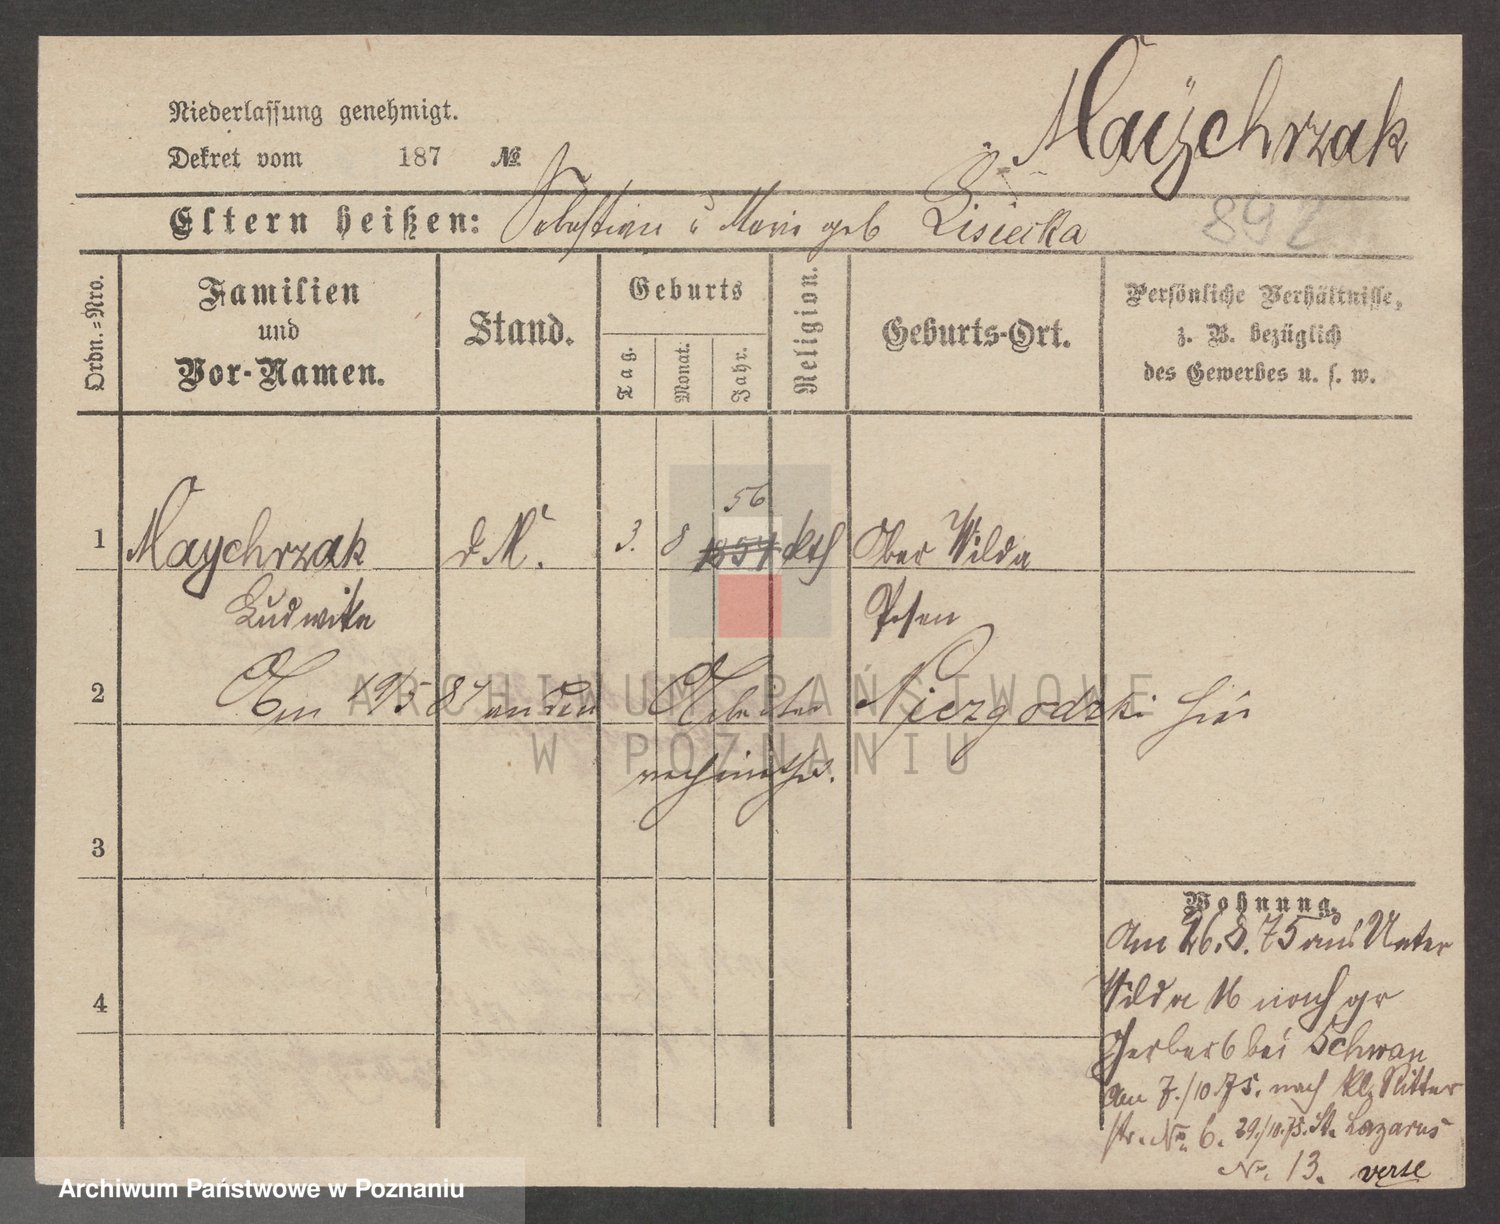 Niederlassung genehmigt.
Dekret vom 187 №
Maÿchrzak
Eltern heißen: Sebastian u Marie geb Lisiecka
892
Ordn.=Nro.
Familien
und
Vor-Namen.
Stand.
Geburts
Tag.
Monat.
Jahr.
Religion.
Geburts-Ort.
Persönliche Verhältnisse,
z. B. bezüglich
des Gewerbes u. s. w.
56
1 Maychrzak d M. 3. 8 1854 kth Ober Wilda
Ludwika Posen
2 Am 19/5 87 an den Arbeiter Niezgodzki hier
verheirathet.
3
Wohnung.
Am 26. 8. 75 aus Unter
Wilda 16 nach gr
4
Gerber 6 bei Schwan
Am 7./10.75. nach kl. Ritter
str. No. 6. 29./10.75. St. Lazarus
No. 13. verte
ARCHIWUM PAŃSTWOWE
W POZNANIU
Archiwum Państwowe w Poznaniu